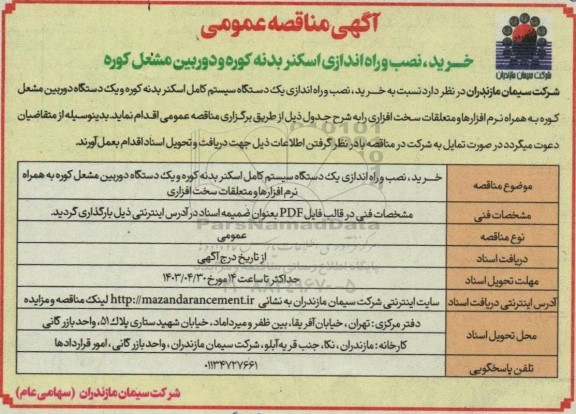 آگهی مناقصه عمومی
شرکت سیمان مازندران
خرید، نصب و راه اندازی اسکنر بدنه کوره و دوربین مشعل کوره
شرکت سیمان مازندران در نظر دارد نسبت به خرید، نصب و راه اندازی یک دستگاه سیستم کامل اسکنر بدنه کوره و یک دستگاه دوربین مشعل
کوره به همراه نرم افزارها و متعلقات سخت افزاری را به شرح جدول ذیل از طریق برگزاری مناقصه عمومی اقدام نماید. بدینوسیله از متقاضیان
دعوت میگردد در صورت تمایل به شرکت در مناقصه با در نظر گرفتن اطلاعات ذیل جهت دریافت و تحویل اسناد اقدام بعمل آورند.
موضوع مناقصه
خرید، نصب و راه اندازی یک دستگاه سیستم کامل اسکنر بدنه کوره و یک دستگاه دوربین مشعل کوره به همراه
نرم افزارها و متعلقات سخت افزاری
مشخصات فنی
مشخصات فنی در قالب فایل PDF بعنوان ضمیمه اسناد در آدرس اینترنتی ذیل بارگذاری گردید.
نوع مناقصه
عمومی
دریافت اسناد
از تاریخ درج آگهی
مهلت تحویل اسناد
حداکثر تا ساعت ۱۴ مورخ ۱۴۰۳/۰۴/۳۰
آدرس اینترنتی دریافت اسناد
سایت اینترنتی شرکت سیمان مازندران به نشانی http://mazandarancement.ir لینک مناقصه و مزایده
محل تحویل اسناد
دفتر مرکزی: تهران، خیابان آفریقا، بین ظفر و میرداماد، خیابان شهید ستاری پلاک ۵۱، واحد بازرگانی
کارخانه: مازندران، نکا، جنب قریه آبلو، شرکت سیمان مازندران، واحد بازرگانی، امور قراردادها
تلفن پاسخگویی
۰۱۱۳۴۷۲۷۶۶۱
شرکت سیمان مازندران (سهامی عام)
ParsNamadData